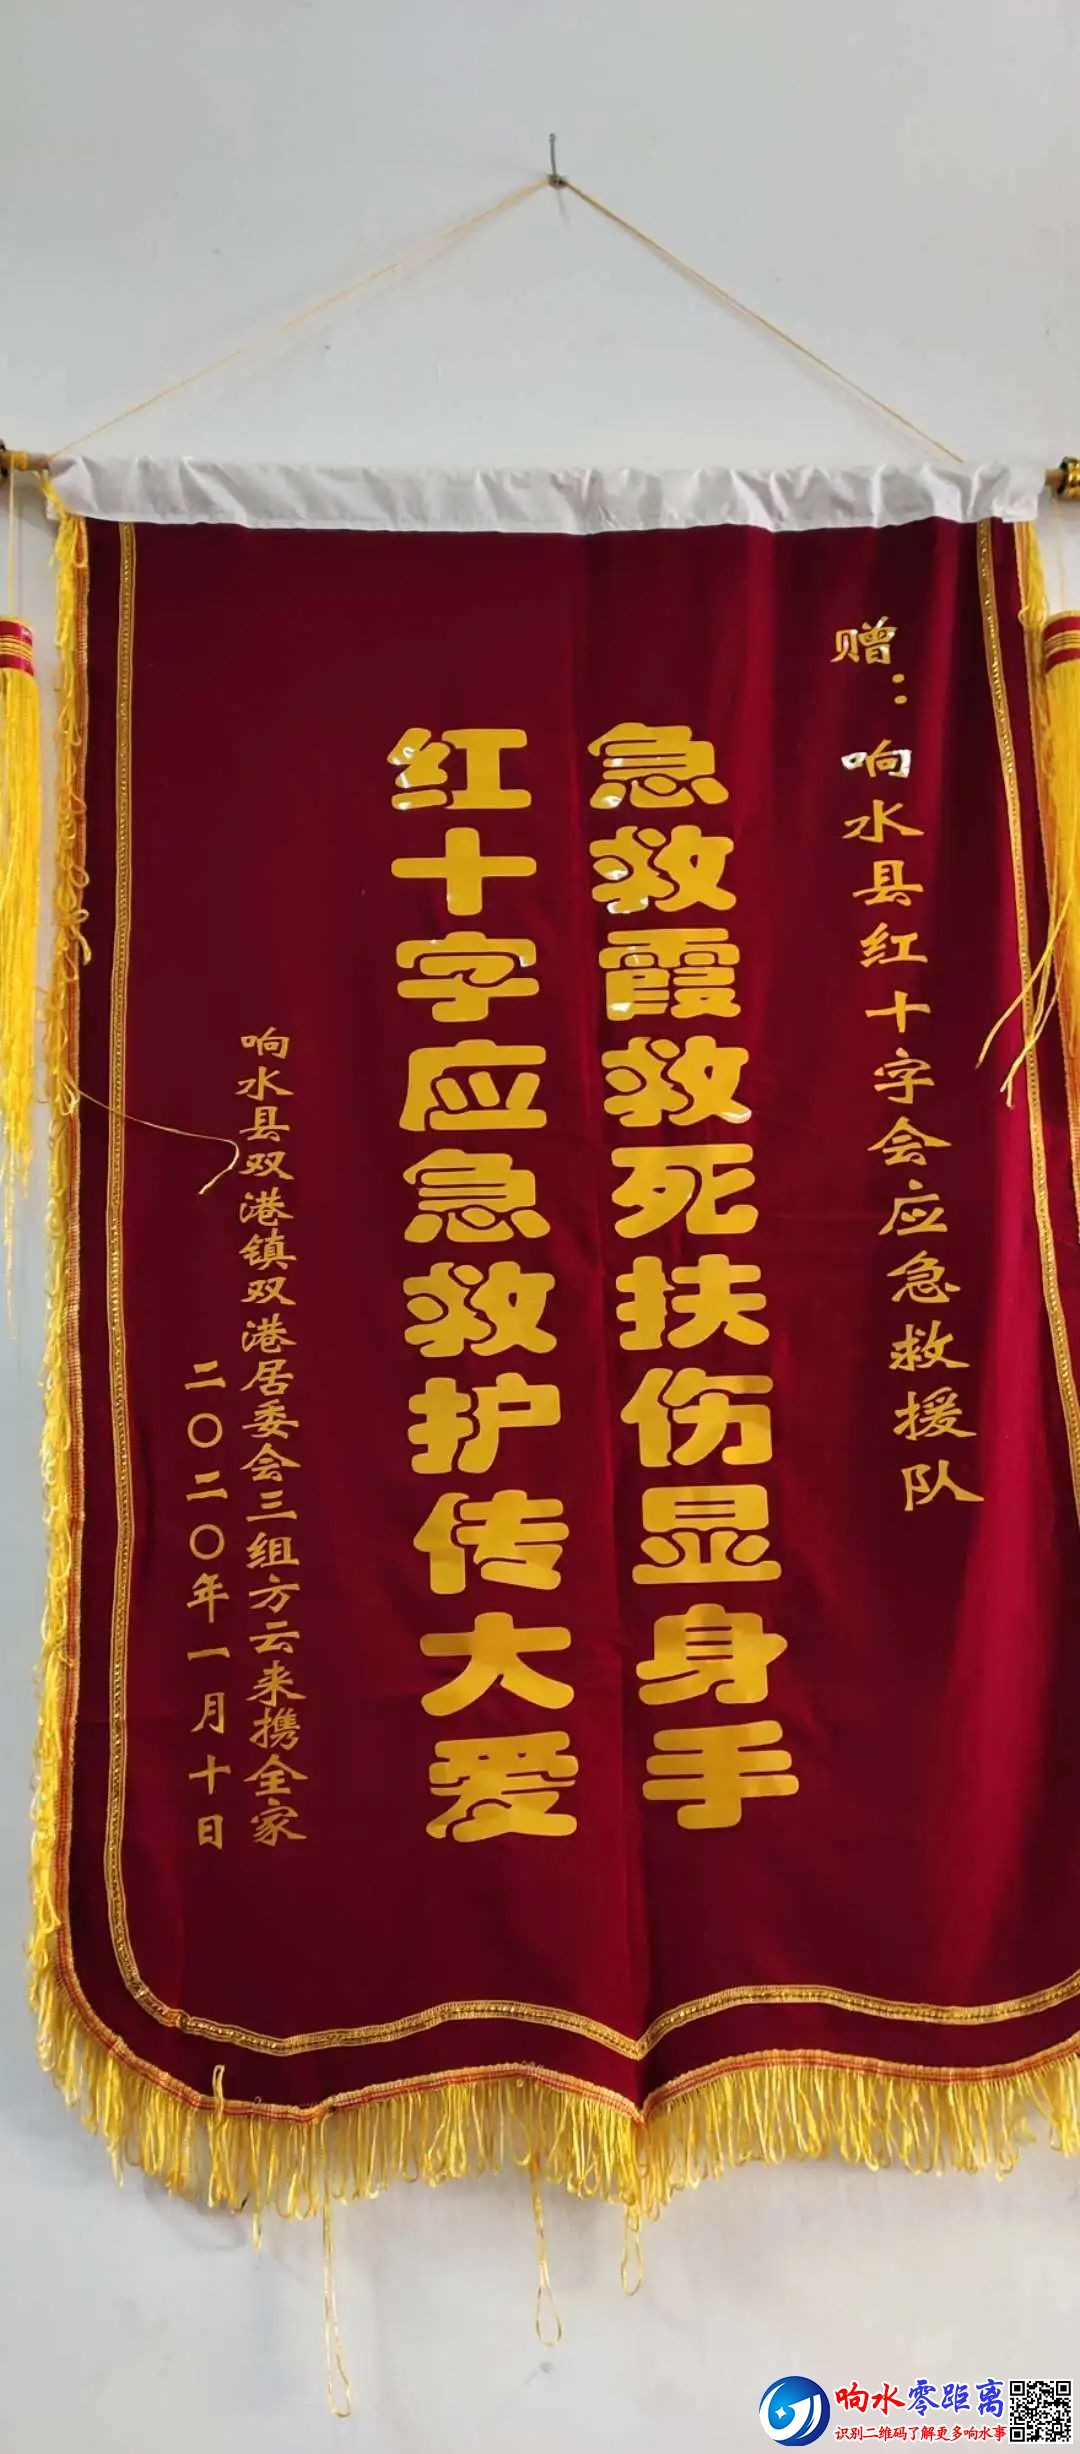 赠：响水县红十字会应急救援队
急救霞救死扶伤显身手
红十字应急救护传大爱
响水县双港镇双港居委会三组方云来携全家
二〇二〇年一月十日
响水零距离
识别二维码了解更多响水事